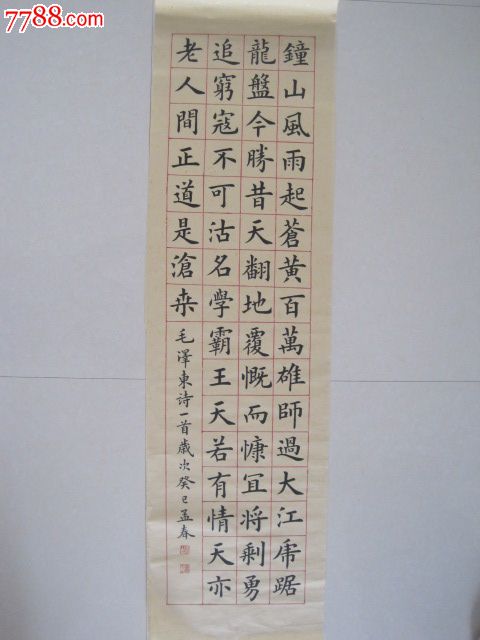 7788.com
鐘山風雨起蒼黃百萬雄師過大江虎踞
龍盤今勝昔天翻地覆慨而慷冝將剩勇
追窮寇不可沽名學霸王天若有情天亦
老人間正道是滄桒毛澤東诗一首歲次癸巳孟春